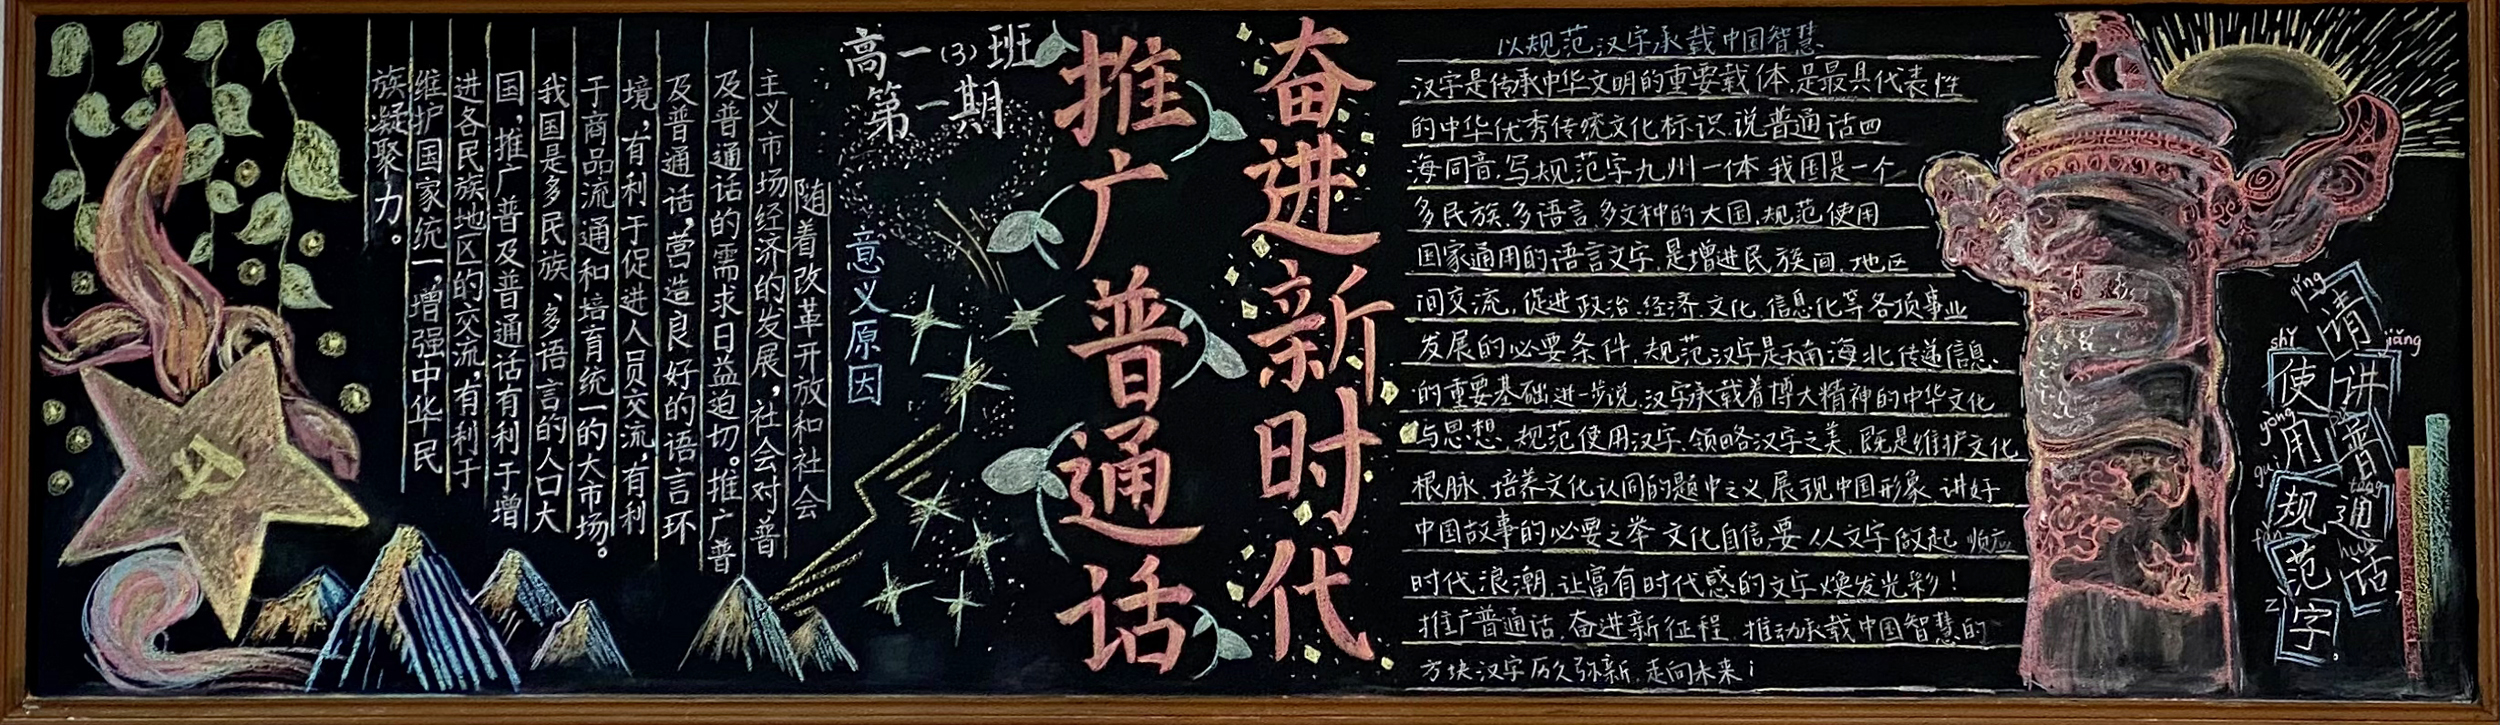 高一(3)班
第一期
推广普通话
奋进新时代
意义原因
随着改革开放和社会
主义市场经济的发展，社会对普
及普通话的需求日益迫切。推广普
及普通话，营造良好的语言环
境，有利于促进人员交流，有利
于商品流通和培育统一的大市场。
我国是多民族、多语言的人口大
国，推广普及普通话有利于增
进各民族地区的交流，有利于
维护国家统一，增强中华民
族凝聚力。
以规范汉字承载中国智慧
汉字是传承中华文明的重要载体,是最具代表性
的中华优秀传统文化标识,说普通话四
海同音,写规范字九州一体 我国是一个
多民族,多语言,多文种的大国,规范使用
国家通用的语言文字,是增进民族间,地区
间交流,促进政治,经济,文化,信息化等各项事业
发展的必要条件,规范汉字是天南海北传递信息
的重要基础进一步说,汉字承载着博大精神的中华文化
与思想,规范使用汉字,领略汉字之美,既是维护文化
根脉,培养文化认同的题中之义,展现中国形象,讲好
中国故事的必要之举 文化自信,要从文字做起 顺应
时代浪潮,让富有时代感的文字焕发光彩!
推广普通话,奋进新征程,推动承载中国智慧的
方块汉字历久弥新,走向未来!
qǐng jiǎng pǔ tōng huà
请讲普通话
shǐ yòng guī fàn zì
使用规范字